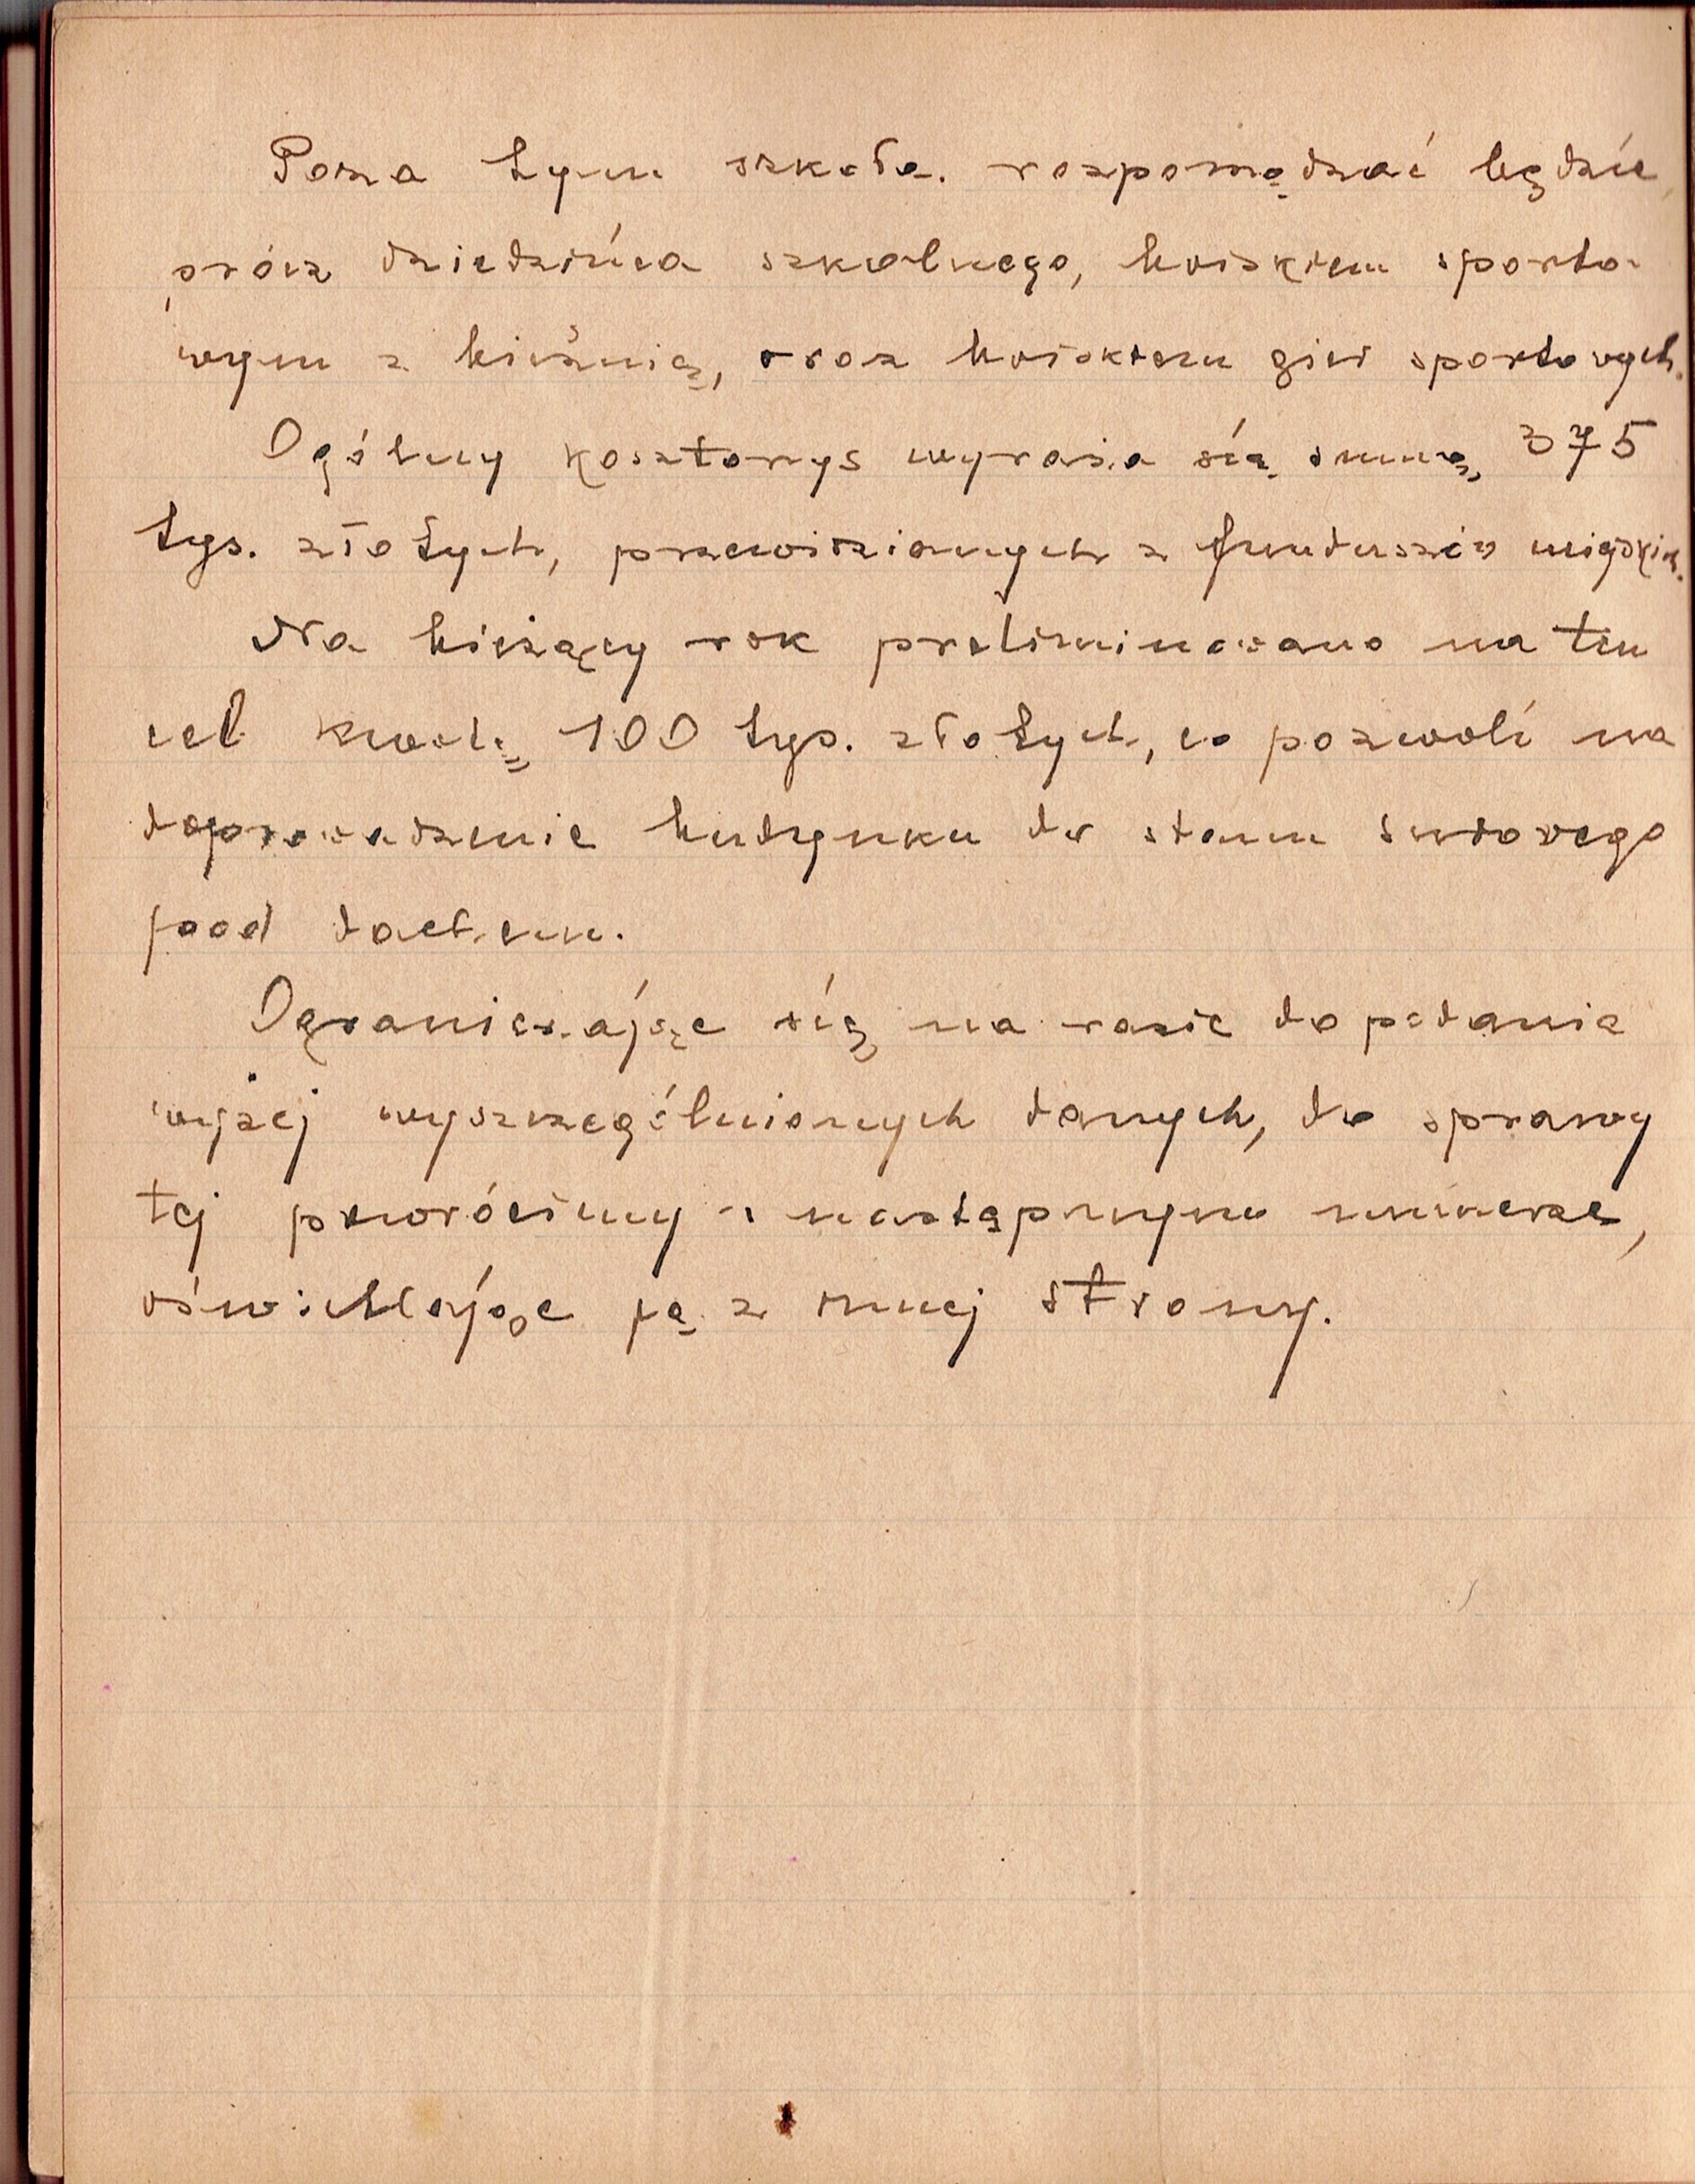 Poza tym szkoła rozporządzać będzie
prócz dziedzińca szkolnego, boiskiem sporto-
wym z bieżnią, oraz boiskiem gier sportowych.
Ogólny kosztorys wyraża się sumą 375
tys. złotych, przewidzianych z funduszów miejskich.
Na bieżący rok preliminowano na ten
cel kwotę 100 tys. złotych, co pozwoli na
doprowadzenie budynku do stanu surowego
pod dachem.
Ograniczając się na razie do podania
wyżej wyszczególnionych danych, do sprawy
tej powrócimy w następnym numerze,
oświetlając ją z innej strony.